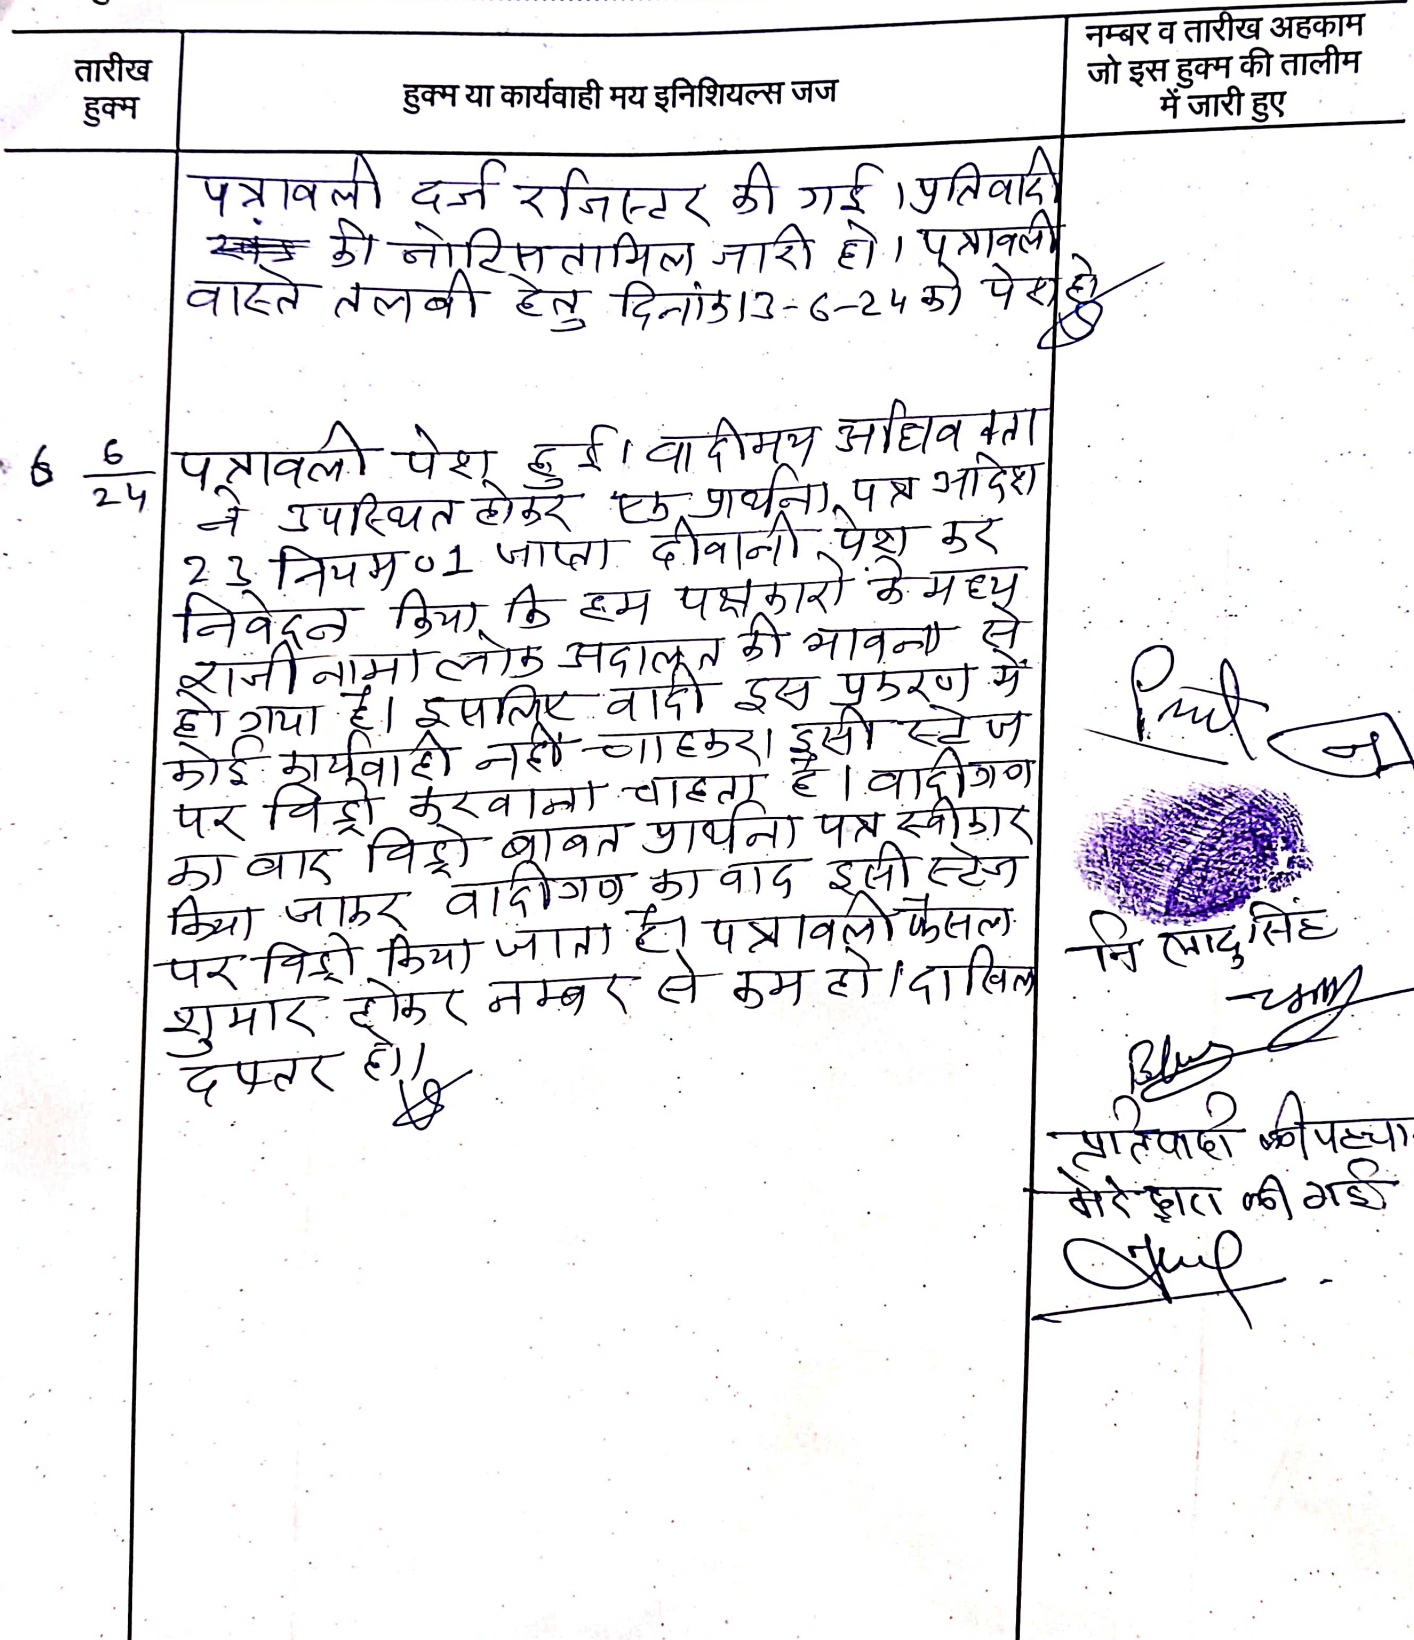 तारीख
हुक्म
हुक्म या कार्यवाही मय इनिशियल्स जज
नम्बर व तारीख अहकाम
जो इस हुक्म की तालीम
में जारी हुए
पत्रावली दर्ज रजिस्टर की गई। प्रतिवादी
की नोटिस तामिल जारी हो। पत्रावली
वास्ते तलबी हेतु दिनांक 13-6-24 को पेश हो
6 6/24
पत्रावली पेश हुई। वादी मय अधिवक्ता
ने उपस्थित होकर एक प्रार्थना पत्र आदेश
23 नियम 01 जाप्ता दीवानी पेश कर
निवेदन किया कि हम पक्षकारो के मध्य
राजीनामा लोक अदालत की भावना से
हो गया है। इसलिए वादी इस प्रकरण में
कोई कार्यवाही नही चाहकर इसी स्टेज
पर विड्रो करवाना चाहता है। वादीगण
का वाद विड्रो बाबत प्रार्थना पत्र स्वीकार
किया जाकर वादीगण का वाद इसी स्टेज
पर विड्रो किया जाता है। पत्रावली फैसल
शुमार होकर नम्बर से कम हो। दाखिल
दफ्तर हो।
नि लादुसिंह
प्रतिवादी की पहचा
मेरे द्वारा की गई